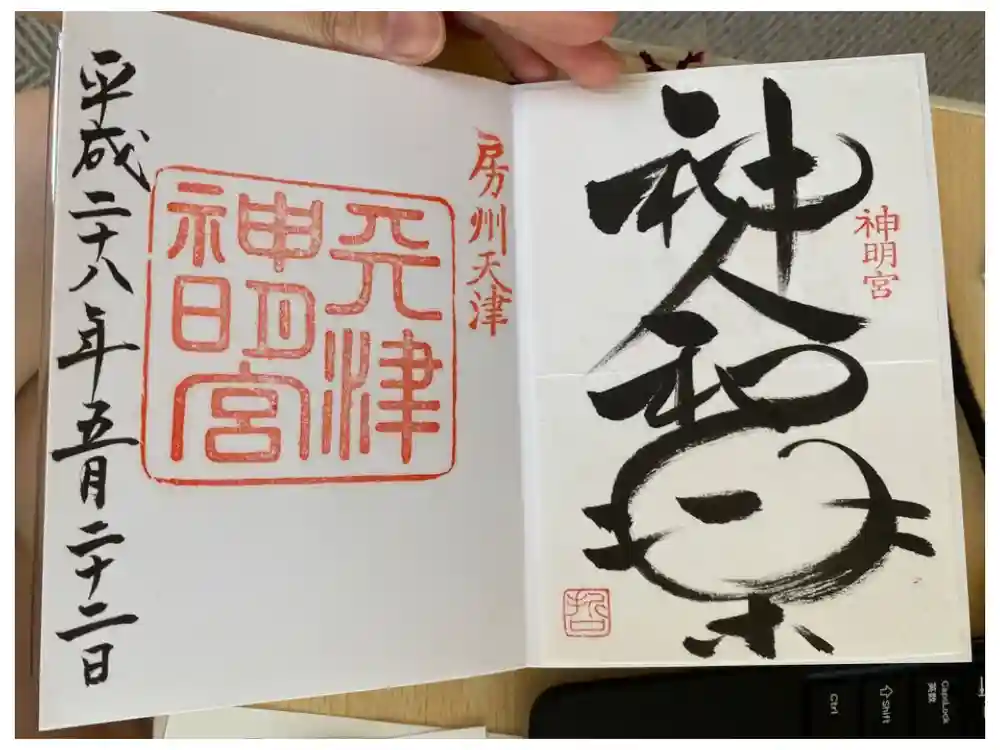 神明宮
神人和楽
哲
房州天津
天津
神明宮
平成二十八年五月二十二日
CapsLock
英数
⇧Shift
Ctrl